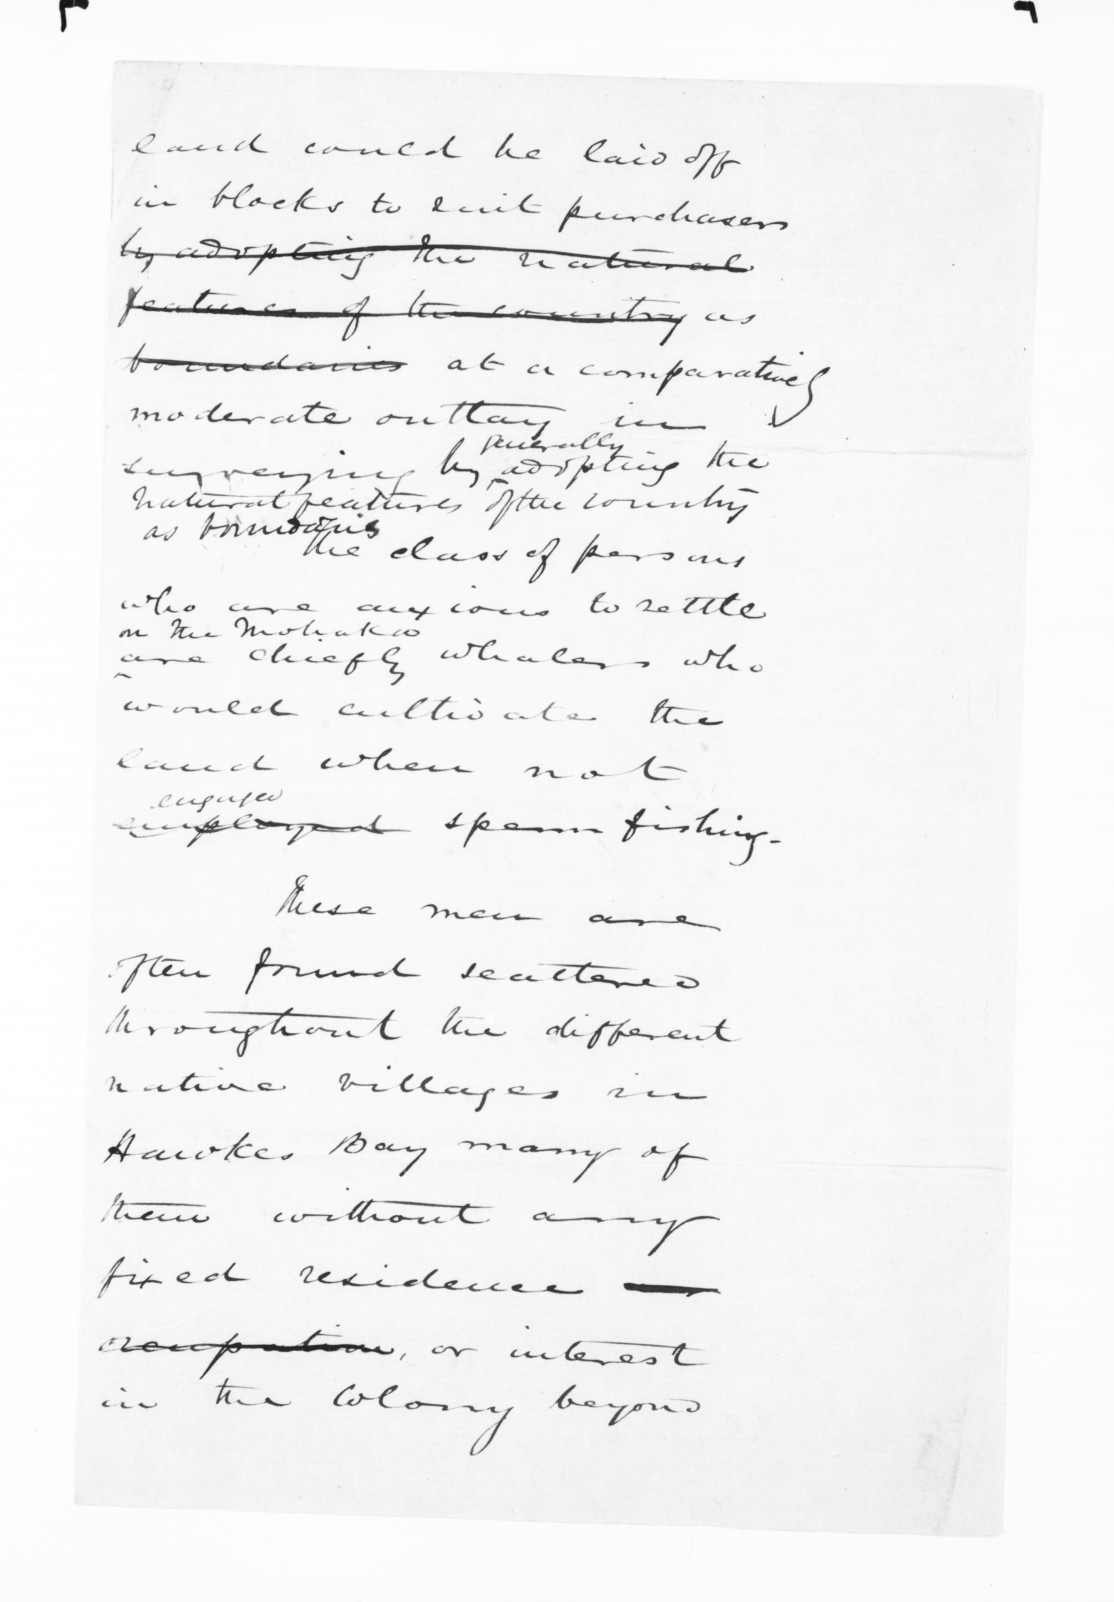 land could be laid off
in blocks to suit purchasers
by adopting the natural
features of the country as
boundaries at a comparatively
moderate outlay in
generally
surveying by adopting the
natural features of the country
as boundaries
The class of persons
who are anxious to settle
on the Mohaka
are chiefly whalers who
would cultivate the
land when not
engaged
employed sperm fishing-
These men are
often found scattered
throughout the different
native villages in
Hawkes Bay many of
them without any
fixed residence
occupation, or interest
in the Colony beyond